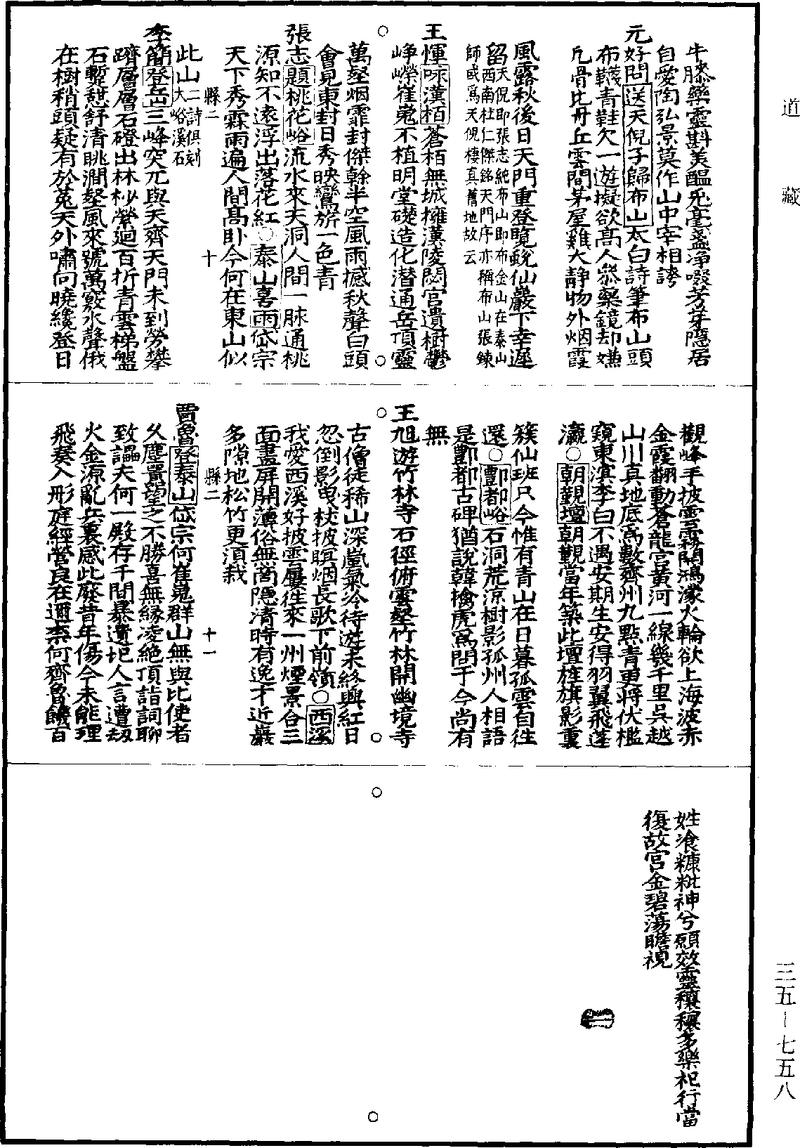 道藏
牛膝藥靈斟美醞兎毫盞淨啜芳芽隱居
自愛陶弘景莫作山中宰相誇
元好問送天倪子歸布山太白詩筆布山頭
布韈青鞋欠一遊擬欲高人參藥鏡却嫌
凡骨比丹丘雲間茅屋雞犬靜物外烟霞
風露秋後日天門重登覽蛻仙巖下幸遲
留天倪即張志純布山即布金山在泰山
西南杜仁傑銘天門序亦稱布山張鍊
師或爲天倪棲真舊地故云
王惲咏漢栢蒼栢無城擁漢陵閟宮遺樹鬱
崢嶸崔嵬不植明堂礎造化潛通岳頂靈
萬壑烟霏封傑幹半空風雨撼秋聲白頭
會見東封日秀映鸞旂一色青
張志題桃花峪流水來天洞人間一脉通桃
源知不遠浮出落花紅○泰山喜雨岱宗
天下秀霖雨遍人間高卧今何在東山似
縣二
十
此山二詩俱刻
大峪溪石
李簡登岳三峰突兀與天齊天門未到勞攀
躋層層石磴出林杪縈迴百折青雲梯盤
石蹔憩舒清眺澗壑風來號萬竅水聲俄
在樹稍頭疑有於菟天外嘯向曉纔登日
觀峰手披雲霧開鴻濛火輪欲上海波赤
金霞翻動蒼龍宮黃河一線幾千里吳越
山川真地底嵩數齊州九點青更將伏檻
窺東溟李白不遇安期生安得羽翼飛蓬
瀛○朝覲壇朝覲當年築此壇旌旗影裏
簇仙班只今惟有青山在日暮孤雲自往
還○酆都峪石洞荒涼樹影孤州人相語
是酆都古碑猶說韓檎虎爲問于今尚有
無
王旭遊竹林寺石徑俯雲壑竹林開幽境寺
古僧徒稀山深嵐氣冷待遊未終興紅日
忽倒影曳杖披暝烟長歌下前領○西溪
我愛西溪好披雲屢往來一州煙景合三
面畫屏開薄俗無崗隱清時有逸才近巖
多隙地松竹更須栽
縣二
十一
賈魯登泰山岱宗何崔嵬群山無與比使者
久塵罵望之不勝喜無緣凌絕頂詣詞聊
致謳夫何一殿存千間暴遺圮人言遭刼
火金源亂兵裏感此廢昔年傷今未能理
飛奏人彤庭經營良在邇柰何齊魯饑百
姓飡糠粃神兮願效靈穰穰多樂祀行當
復故宮金碧蕩瞻視
三五－七五八